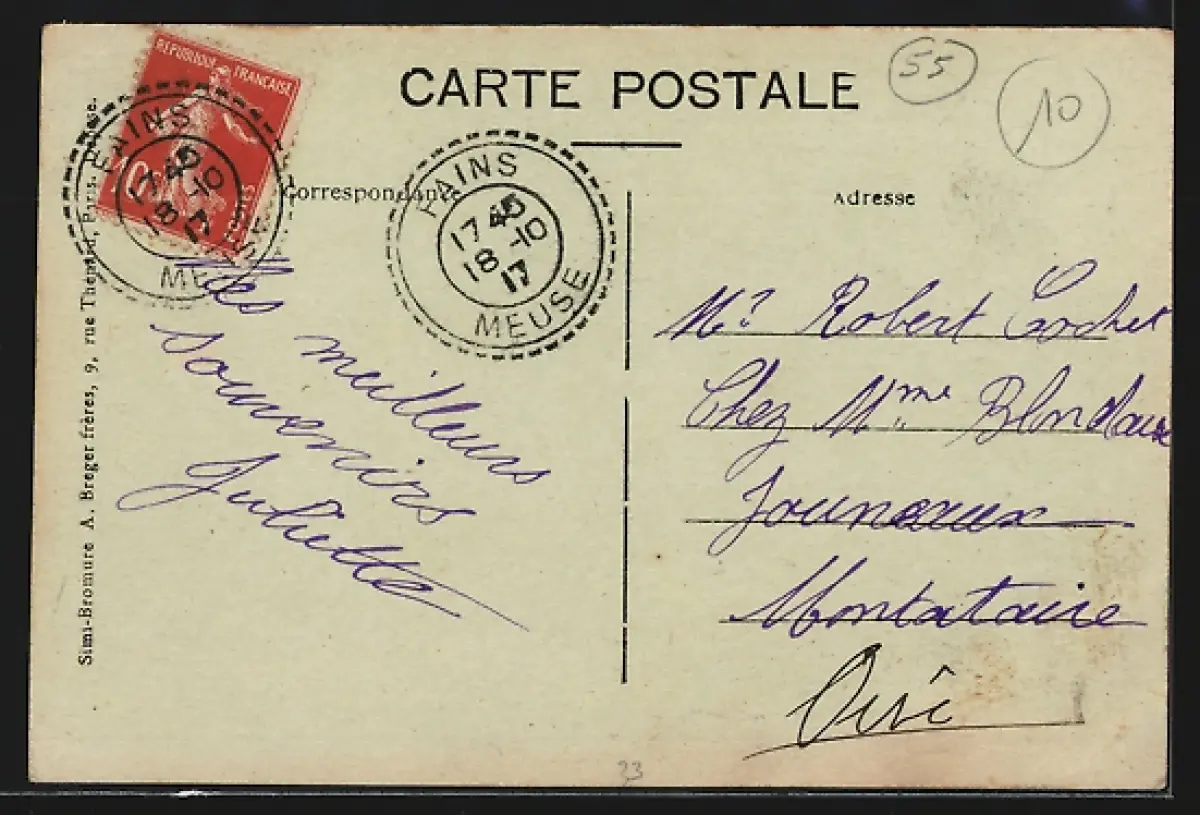 CARTE POSTALE
55
10
REPUBLIQUE FRANÇAISE
10
FAINS
17 45
18 -10
17
MEUSE
FAINS
17 45
18 -10
17
MEUSE
Correspondance
Adresse
Mes meilleurs
souvenirs
Juliette
Mr Robert Cochet
Chez Mme
Montataire
Oise
Simi-Bromure A. Breger frères, 9, rue Thénard, Paris.
33